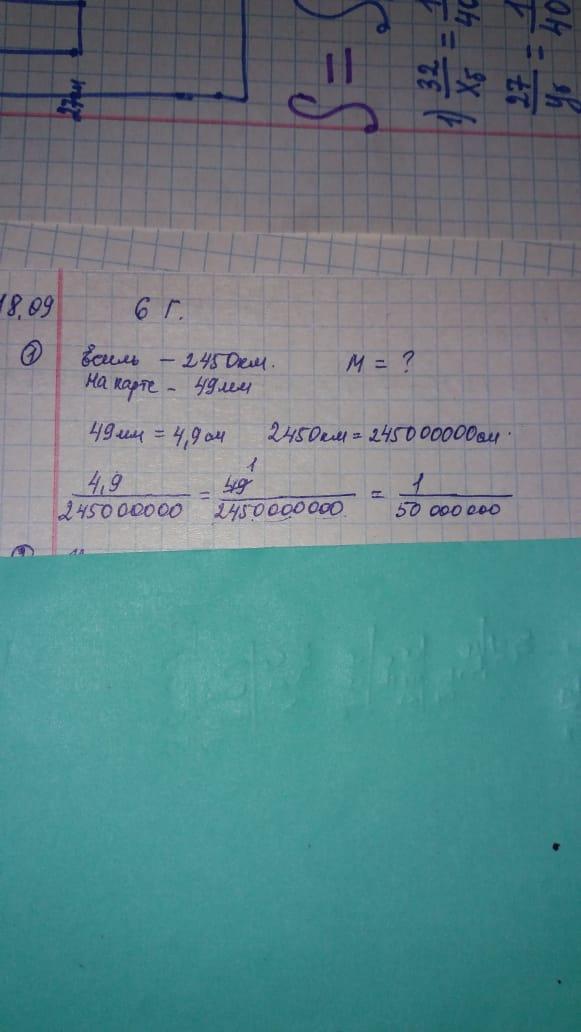 27м
S =
1) 32/x₅ = 1/40
27/y₅ = 1/40
18.09 6 Г.
① - 2450км. М = ?
На карте - 49мм
49мм = 4,9 см 2450км = 245000000см.
4,9/245000000 = 49/2450000000 = 1/50 000 000
1